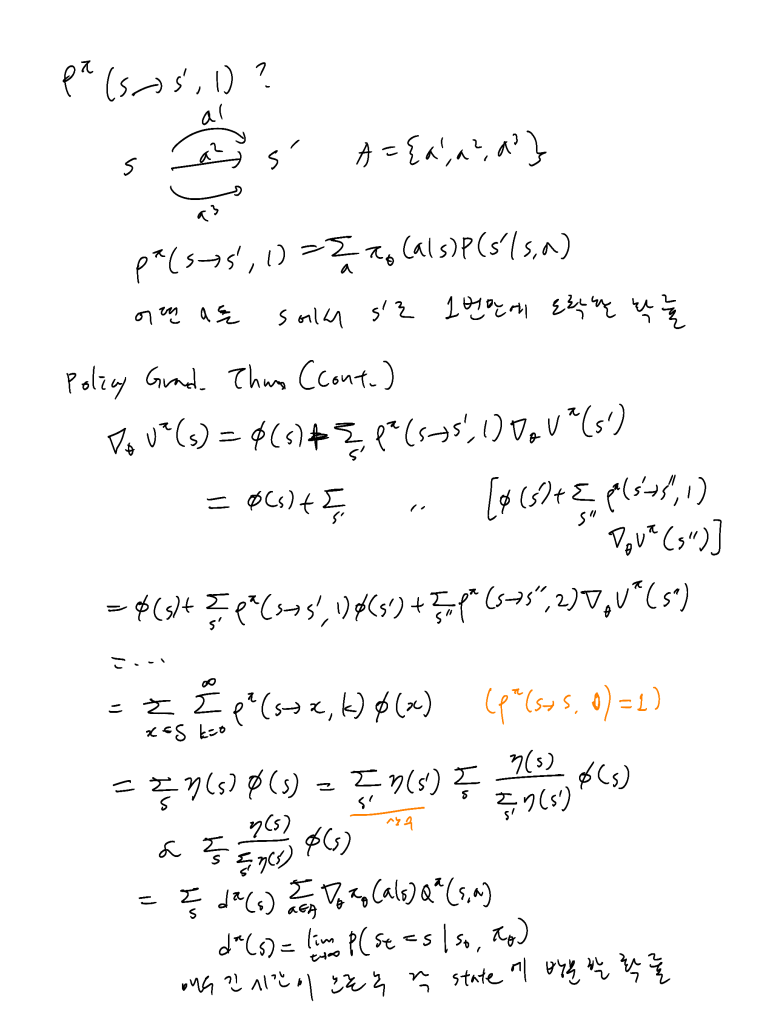 ρ^π (s→s', 1) ?
a1
s a² s' A = {a¹, a², a³}
a³
ρ^π(s→s', 1) = Σ_a π_θ(a|s)P(s'|s,a)
어떤 a로 s에서 s'로 1번만에 도착할 확률
Policy Grad. Thm (Cont.)
∇_θ V^π(s) = φ(s) + Σ_s' ρ^π(s→s', 1) ∇_θ V^π(s')
= φ(s) + Σ_s' 〃 [φ(s') + Σ_s'' ρ^π(s'→s'', 1)
∇_θ V^π(s'')]
= φ(s) + Σ_s' ρ^π(s→s', 1) φ(s') + Σ_s'' ρ^π(s→s'', 2) ∇_θ V^π(s'')
= ...
= Σ_{x∈S} Σ_{k=0}^∞ ρ^π(s→x, k) φ(x) (ρ^π(s→s, 0) = 1)
= Σ_s η(s) φ(s) = Σ_s' η(s') Σ_s η(s) / Σ_s' η(s') φ(s)
상수
α Σ_s η(s) / Σ_s' η(s') φ(s)
= Σ_s d^π(s) Σ_{a∈A} ∇_θ π_θ(a|s) Q^π(s,a)
d^π(s) = lim_{t→∞} P(s_t = s | s_0, π_θ)
매우 긴 시간이 흐른 후 각 state에 방문할 확률